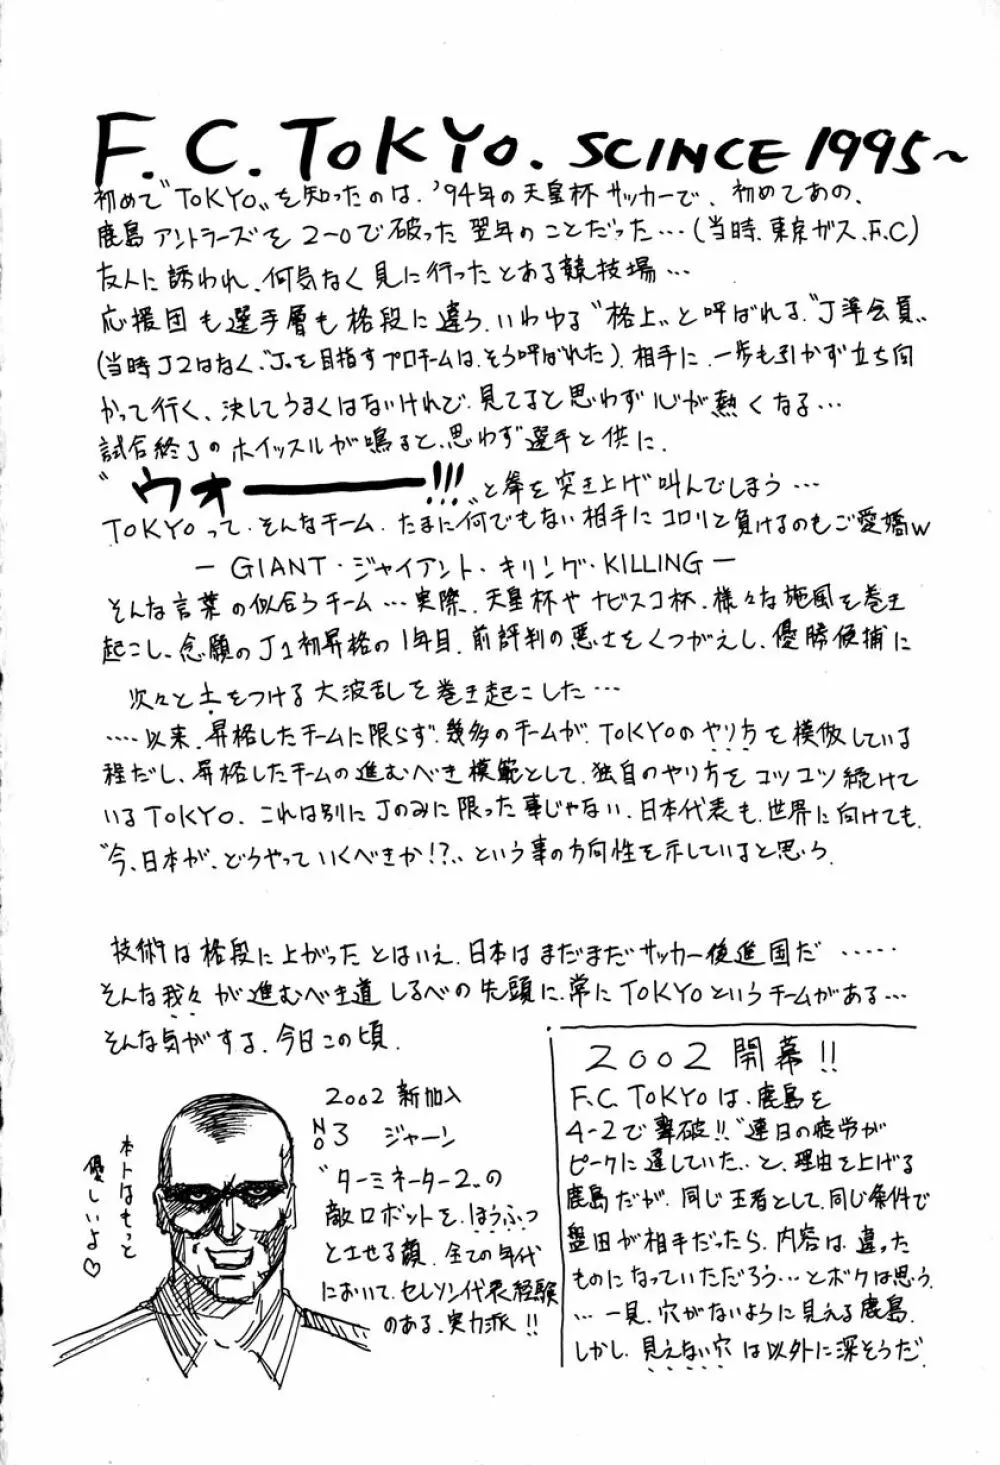 F.C.TOKYO. SCINCE 1995～
初めて"TOKYO"を知ったのは、'94年の天皇杯サッカーで、初めてあの、
鹿島アントラーズを2-0で破った翌年のことだった…(当時、東京ガス、F.C)
友人に誘われ、何気なく見に行ったとある競技場…
応援団も選手層も格段に違う、いわゆる"格上"と呼ばれる"J準会員"
(当時J2はなく、"J"を目指すプロチームは、そう呼ばれた)、相手に、一歩も引かず立ち向
かって行く、決してうまくはないけれど、見てると思わず心が熱くなる…
試合終了のホイッスルが鳴ると、思わず選手と供に、
"ウォー――!!!"と拳を突き上げ叫んでしまう…
TOKYOって、そんなチーム、たまに何でもない相手にコロリと負けるのもご愛嬌w
― GIANT・ジャイアント・キリング・KILLING ―
そんな言葉の似合うチーム…実際、天皇杯やナビスコ杯、様々な旋風を巻き
起こし、念願のJ1初昇格の1年目、前評判の悪さをくつがえし、優勝候補に
次々と土をつける大波乱を巻き起こした…
……以来、昇格したチームに限らず、幾多のチームが、TOKYOのやり方を模倣している
程だし、昇格したチームの進むべき模範として、独自のやり方をコツコツ続けて
いるTOKYO。これは別にJのみに限った事じゃない、日本代表も、世界に向けても、
"今、日本が、どうやっていくべきか!?"という事の方向性を示していると思う。
技術は格段に上がったとはいえ、日本はまだまだサッカー後進国だ……
そんな我々が進むべき道しるべの先頭に、常にTOKYOというチームがある…
そんな気がする、今日この頃。
2002 新加入
NO 3 ジャーン
"ターミネーター2"の
敵ロボットを、ほうふつ
とさせる顔、全ての年代
において、セレソン代表経験
のある、実力派!!
ホントはもっと
優しいよ♡
2002 開幕!!
F.C.TOKYOは、鹿島を
4-2で撃破!!"連日の疲労が
ピークに達していた"と、理由を上げる
鹿島だが、同じ王者として、同じ条件で
磐田が相手だったら、内容は、違った
ものになっていただろう…とボクは思う。
…一見、穴がないように見える鹿島、
しかし、見えない穴は以外に深そうだ。